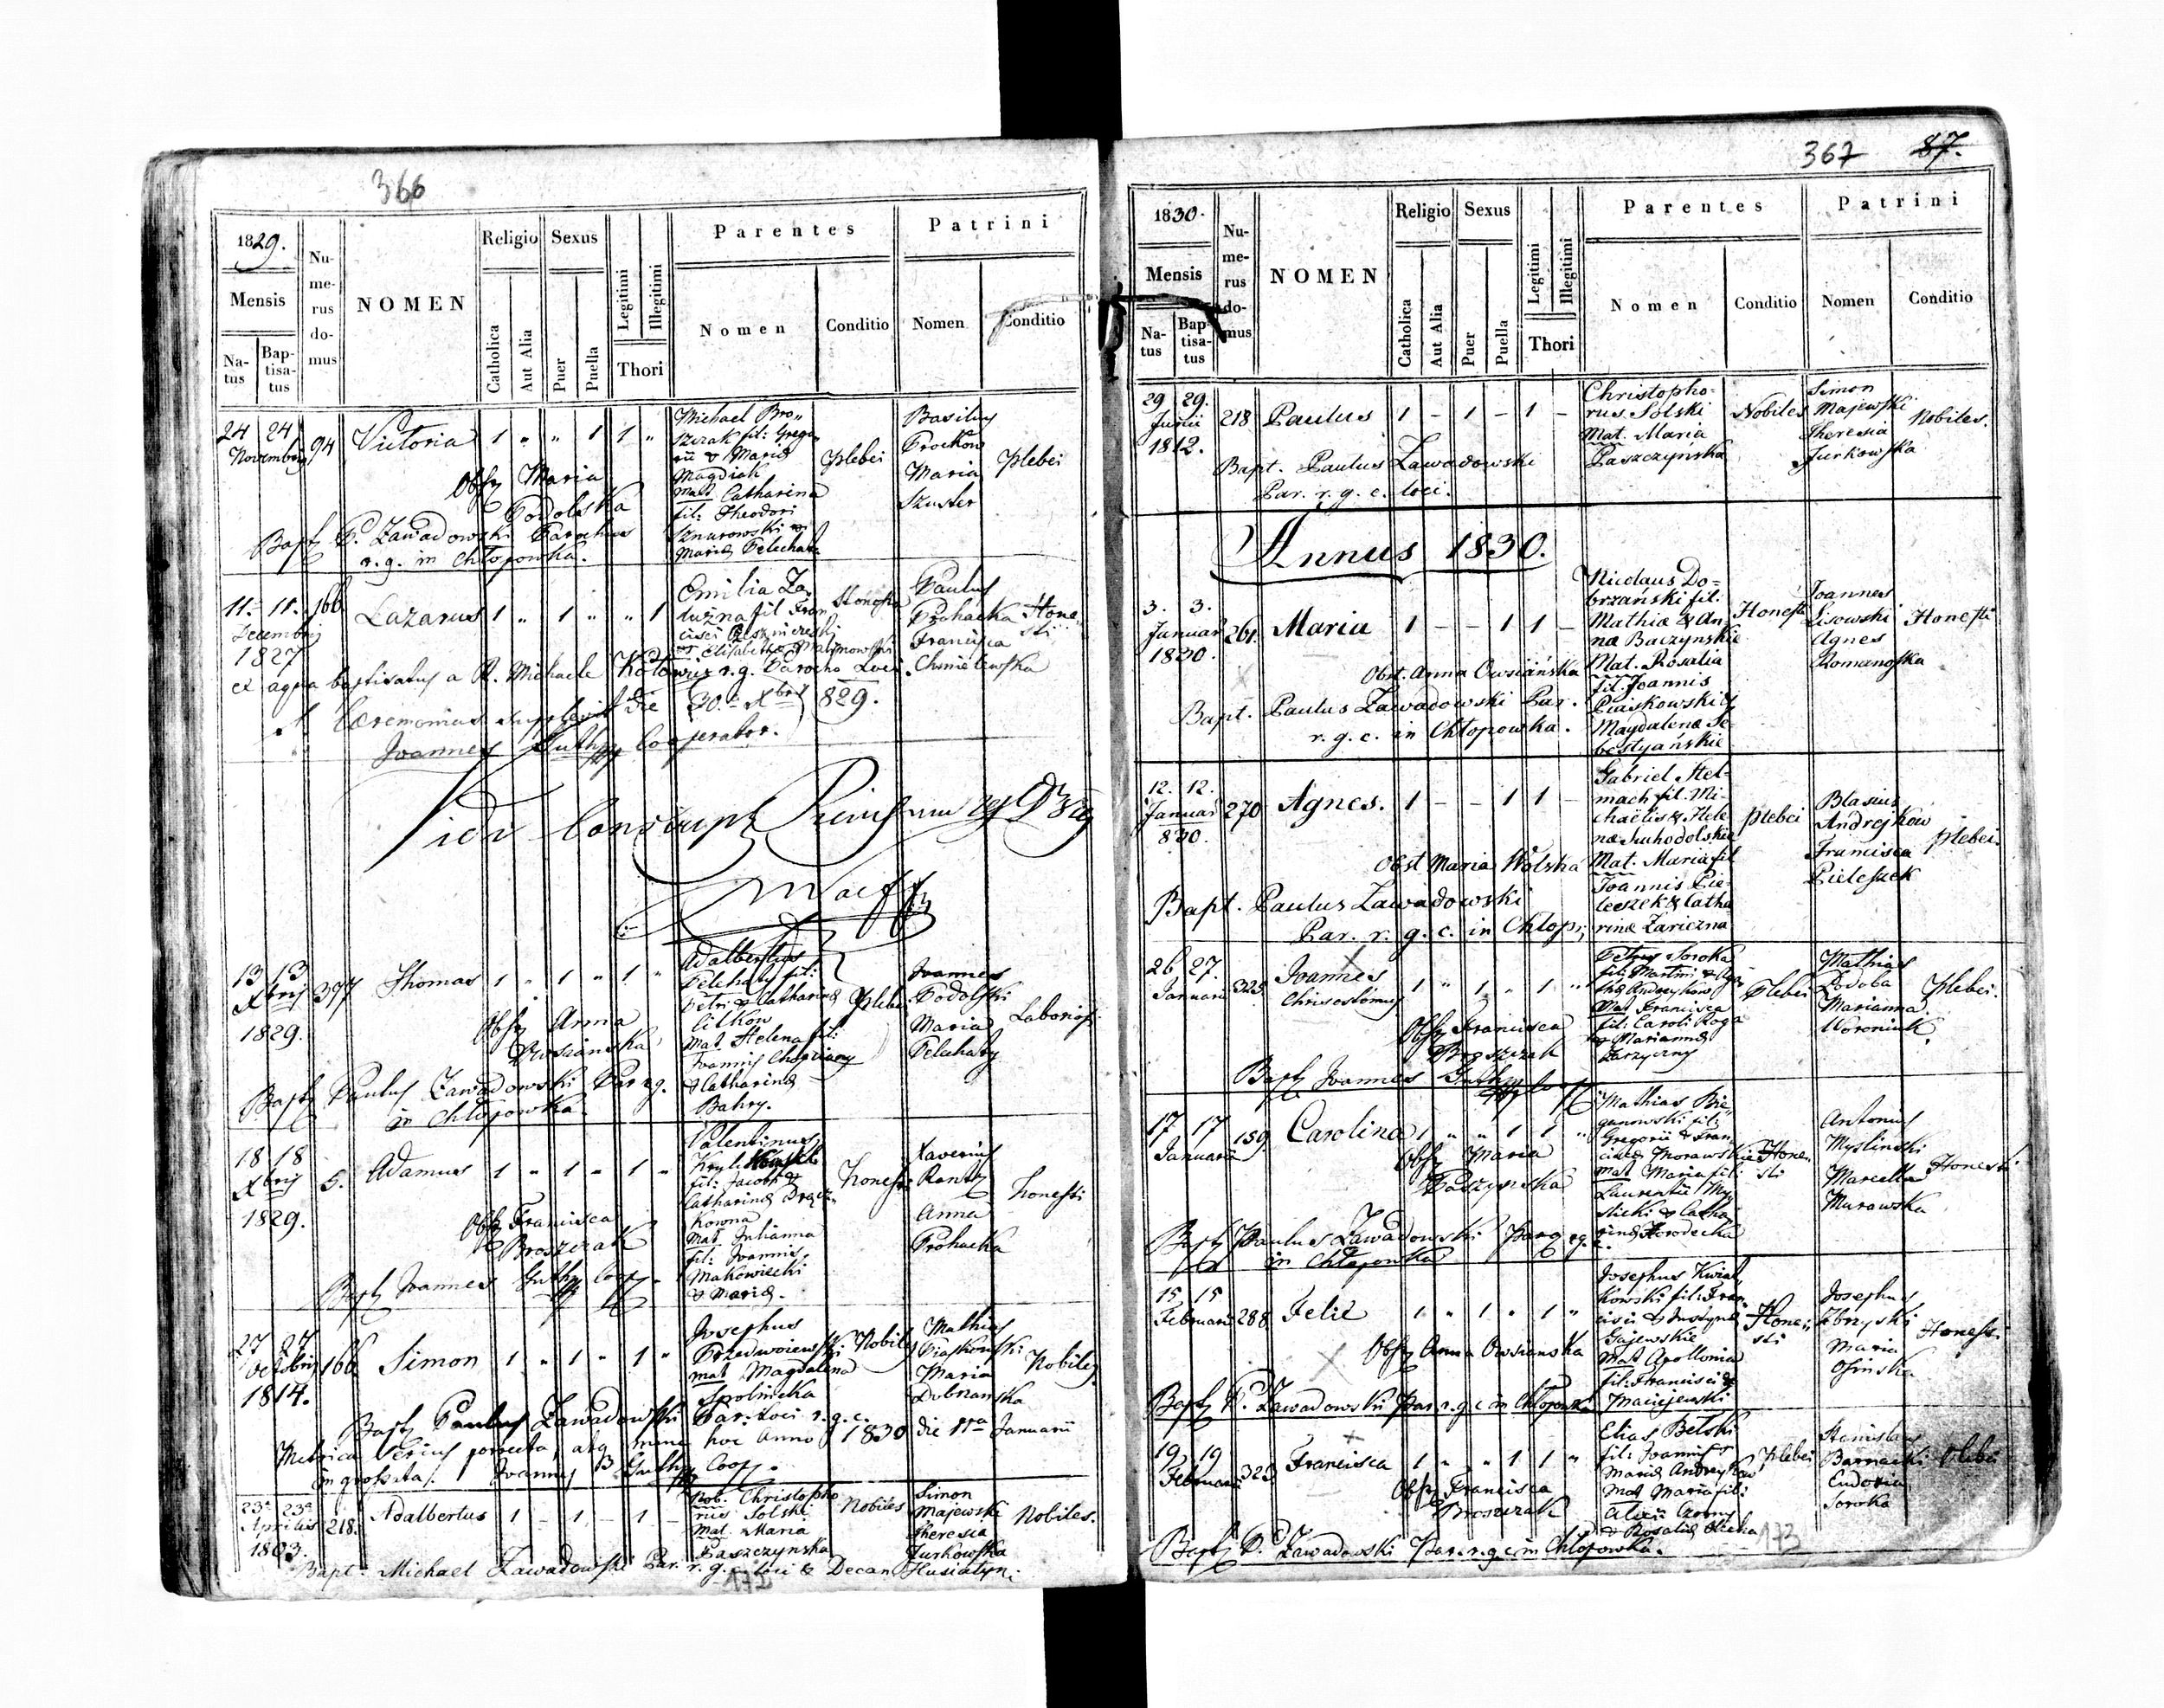 366
1829.
Mensis
Na-
tus
Bap-
tisa-
tus
Nu-
me-
rus
do-
mus
NOMEN
Religio
Catholica
Aut Alia
Sexus
Puer
Puella
Legitimi
Illegitimi
Thori
Parentes
Nomen
Conditio
Patrini
Nomen
Conditio
24 24 94 Victoria 1 " " 1 1 "
Novembris
Michael Bro,,
szczak fil: Grego
rii & Maria
Magdiak
Mat Catharina
fil: Theodori
Sznurowski &
Maria Pelechata
plebei
Basilius
Prockow
Maria
Szuster
plebei
Obst Maria
Podolska
Bapt P. Zawadowski Parochus
r. g. in Chłopowka.
11. 11. 166 Lazarus 1 " 1 " " 1
Decembris
1827
Emilia Za,
fil Fran
cisci
& Elisabetha Malinowski
Honesta
Paulus
Prohacka
Francisca
Chmielewska
Hone,
sti
ex aqua baptisatus a R. Michaele r. g. Parocho Loci.
Ceremonias supplevit die 30. Xbris 829.
Joannes Guthy Cooperator.
13 13 397 Thomas 1 " 1 " 1 "
Xbris
1829.
Adalbertus
Pelehaty fil:
Petri & Catharina
Citkow
Mat Helena fil:
Joannis
& Catharina
Bahry.
plebei
Joannes
Podolski
Maria
Pelehaty
Laboriosi
Obst Anna
Owsianska
Bapt Paulus Zawadowski Par r g.
in Chłopowka
18 18 5. Adamus 1 " 1 " 1 "
Xbris
1829.
Valentinus
fil: Jacobi &
Catharina
kowna
Mat Julianna
fil: Joannis
Makowiecki
& Maria.
honesti
Xaverius
Anna
Prohacka
honesti
Obst Francisca
Broszczak
Bapt Joannes Guthy Coop.
27 27 166 Simon 1 " 1 " 1 "
Octobris
1814.
Josephus
Przedwojewski
mat Magdalena
Nobiles
Mathias
Piaskowski
Maria
Dubnanska
Nobiles
Bapt Paulus Zawadowski Par: loci r. g. c.
Metrica serius porrecta, atq mene hoc Anno 1830 die 11a Januarii
in grossata. Joannes B Guthy Coop.
23a 23a 218. Adalbertus 1 - 1 - 1 -
Aprilis
1803.
Nob. Christopho
rus Solski
Mat. Maria
Paszczynska
Nobiles
Simon
Majewski
Theresia
Jurkowska
Nobiles.
Bapt. Michael Zawadowski Par. r. g. c. loci & Decan Husiatyn.
172
367 87.
1830.
Mensis
Na-
tus
Bap-
tisa-
tus
Nu-
me-
rus
do-
mus
NOMEN
Religio
Catholica
Aut Alia
Sexus
Puer
Puella
Legitimi
Illegitimi
Thori
Parentes
Nomen
Conditio
Patrini
Nomen
Conditio
29 29. 218 Paulus 1 - 1 - 1 -
Junii
1812.
Christopho-
rus Solski
Mat. Maria
Paszczynska
Nobiles
Simon
Majewski
Theresia
Jurkowska
Nobiles.
Bapt. Paulus Zawadowski
Par. r. g. c. loci.
Annus 1830.
3. 3. 261. Maria 1 - - 1 1 -
Januar
1830.
Nicolaus Do=
brzański fil:
Mathiæ & An-
næ Baczynskie
Mat. Rosalia
fil. Joannis
Piaskowski &
Magdalena Se-
bestyańskie
Honesti
Joannes
Lisowski
Agnes
Romanoska
Honesti
Obst. Anna Owsiańska
Bapt. Paulus Zawadowski Par.
r. g. c. in Chłopowka.
12. 12. 270 Agnes. 1 - - 1 1 -
Januar
830.
Gabriel Stel-
mach fil. Mi-
chaëlis & Hele
næ Suchodolskie
Mat. Maria fil
Joannis Pie-
leszek & Catha
rinæ Zariczna
plebei
Blasius
Andrejkow
Francisca
Pieleszek
plebei.
Obst Maria Wolska
Bapt. Paulus Zawadowski
Par. r. g. c. in Chłop:
26 27. 325 Joannes 1 " 1 " 1 "
Januarii Chrisostomus
Petrus Soroka
fil: Martini & Aga
tha Andreykow
Mat Francisca
fil: Caroli Roga
& Marianna
Zarzyczny
plebei
Mathias
Dodoba
Marianna
Woroniuk
plebei.
Obst Francisca
Broszczak
Bapt Joannes Guthy Coop
17 17 159. Carolina 1 " " 1 1 "
Januarii
Mathias Bie,
ganowski fil:
Gregorii & Fran
ciscæ Morawskie
Mat Maria fil:
Laurentii My
slicki & Catha
rina Horodecka
Hone,
sti
Antonius
Myslinski
Marcella
Murawska
Honesti
Obst Maria
Paszynska
Bapt Paulus Zawadowski Par r g. c.
in Chłopowka
15 15 288 Felix 1 " 1 " 1 "
Februarii
Josephus Kwiat,
kowski fil: Fran,
cisci & Justyna
Gajewskie
Mat Apollonia
fil: Francisci &
Maciejewski
Hone,
sti
Josephus
Zbrzyski
Maria
Osinska
Honesti
Obst Anna Owsianska
Bapt P. Zawadowski Par. r. g c in Chłopowka
19 19 325 Francisca 1 " " 1 1 "
Februarii
Elias Belski
fil: Joannis &
Maria Andreykow
Mat Maria fil:
Alexii Czorny
& Rosalia
plebei
Stanislaus
Barnacki
Eudoxia
Soroka
plebei
Obst Francisca
Broszczak
Bapt P. Zawadowski Par. r. g c in Chłopowka.
173